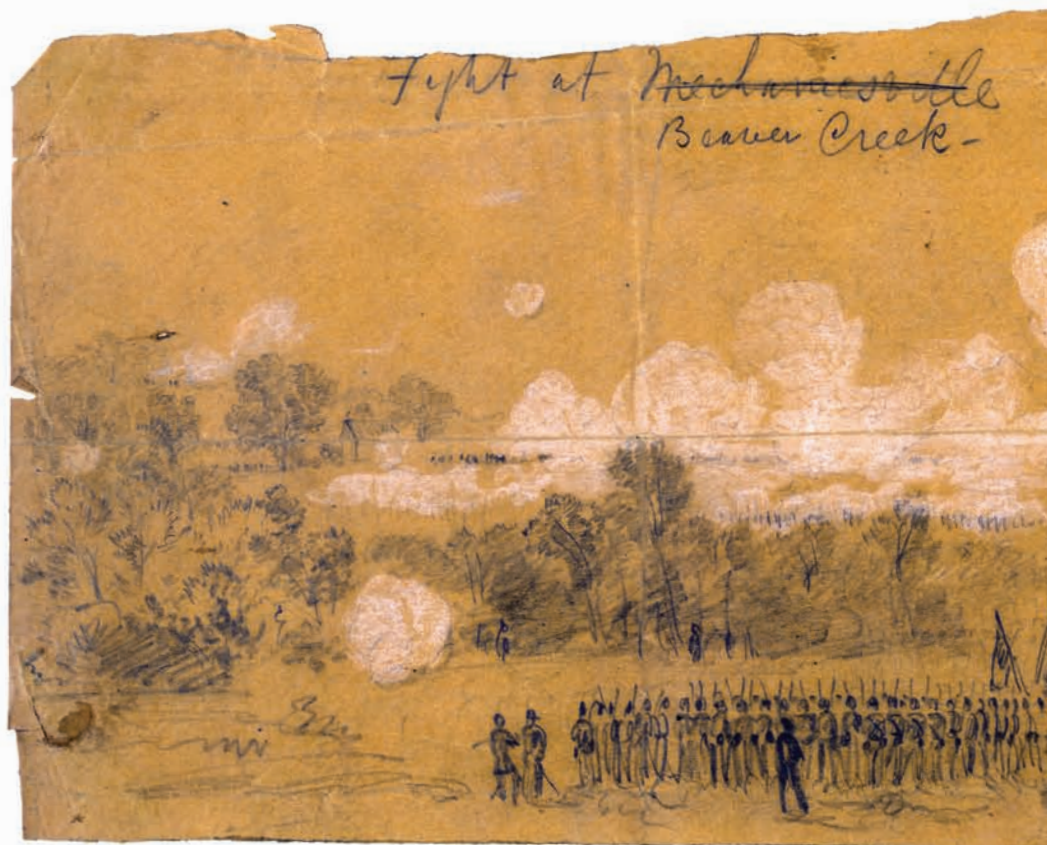 Fight at Mechanicsville
Beaver Creek-